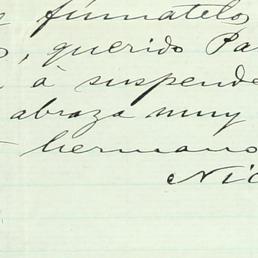 fúmatelos
, querido Pa
à suspende
abraza muy
hermano
Nic